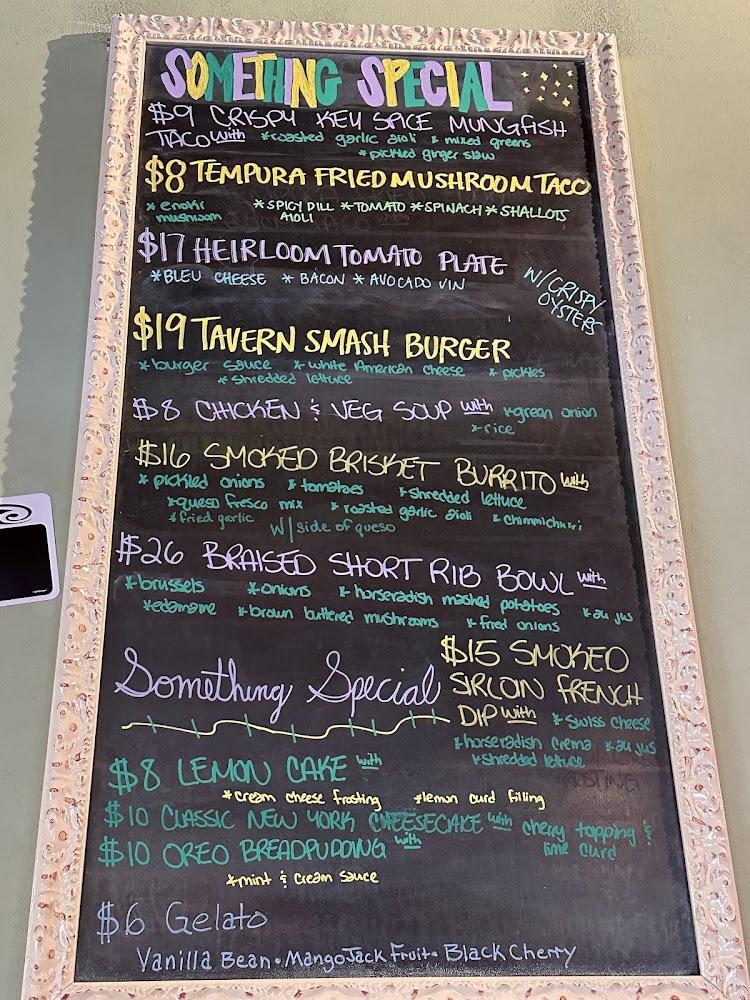 SOMETHING SPECIAL
$9 CRISPY KEY SPICE MUNGFISH
TACO with *roasted garlic aioli & mixed greens
*pickled ginger slaw
$8 TEMPURA FRIED MUSHROOM TACO
*enoki mushroom *SPICY DILL AIOLI *TOMATO *SPINACH *SHALLOTS
$17 HEIRLOOM TOMATO PLATE
*BLEU CHEESE *BACON *AVOCADO VIN
W/CRISPY
OYSTERS
$19 TAVERN SMASH BURGER
*burger sauce *white American cheese *pickles
*shredded lettuce
$8 CHICKEN & VEG SOUP with *green onion
*rice
$16 SMOKED BRISKET BURRITO with
*pickled onions *tomatoes *shredded lettuce
*queso fresco mix *roasted garlic aioli *chimmichurri
*fried garlic w/side of queso
$26 BRAISED SHORT RIB BOWL with
*brussels *onions *horseradish mashed potatoes *au jus
*edamame *brown buttered mushrooms *fried onions
$15 SMOKED
SIRLOIN FRENCH
DIP with *swiss cheese
*horseradish crema *au jus
*shredded lettuce
Something Special
$8 LEMON CAKE with
*cream cheese frosting *lemon curd filling
$10 CLASSIC NEW YORK CHEESECAKE with cherry topping &
lime curd
$10 OREO BREADPUDDING with
*mint & cream sauce
$6 Gelato
Vanilla Bean • Mango Jack Fruit • Black Cherry